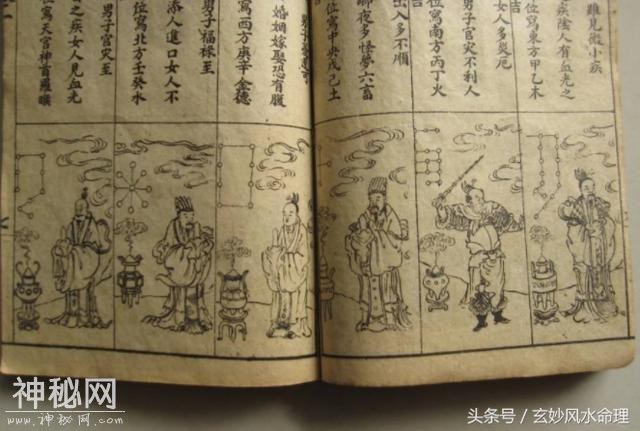 雖見微小疾
疾陰人有血光之
位寫東方甲乙木
吉
女人多災厄
男子官灾不利人
位寫南方丙丁火
吉
出入多不順
夜多怪夢六畜
位寫中央戊己土
婚姻嫁娶恐有腹
位寫西方庚辛金德
男子福禄至
添人進口女人不
位寫北方壬癸水
男子官灾至
之疾女人見血光
位寫天宮神首羅睺
神秘网
www.神秘网.com
头条号 / 玄妙风水命理